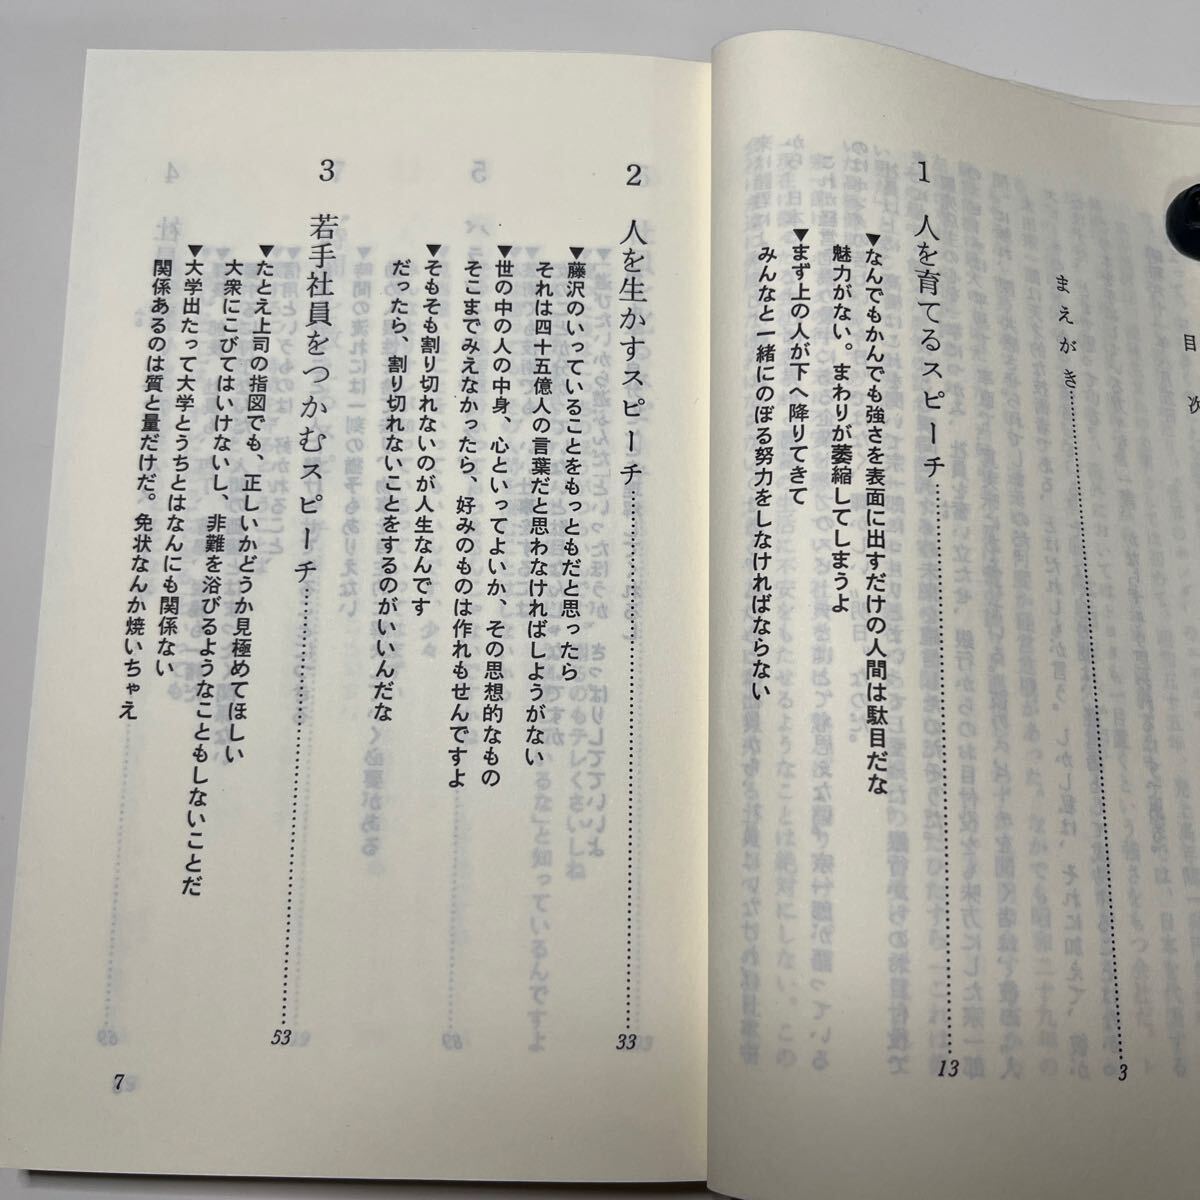 目次
まえがき……3
1 人を育てるスピーチ……13
▼なんでもかんでも強さを表面に出すだけの人間は駄目だな
魅力がない。まわりが萎縮してしまうよ
▼まず上の人が下へ降りてきて
みんなと一緒にのぼる努力をしなければならない
2 人を生かすスピーチ……33
▼藤沢のいっていることをもっともだと思ったら
それは四十五億人の言葉だと思わなければしようがない
▼世の中の人の中身、心といってよいか、その思想的なもの
そこまでみえなかったら、好みのものは作れもせんですよ
▼そもそも割り切れないのが人生なんです
だったら、割り切れないことをするのがいいんだな
3 若手社員をつかむスピーチ……53
▼たとえ上司の指図でも、正しいかどうか見極めてほしい
大衆にこびてはいけないし、非難を浴びるようなこともしないことだ
▼大学出たって大学とうちとはなんにも関係ない
関係あるのは質と量だけだ。免状なんか焼いちゃえ
7